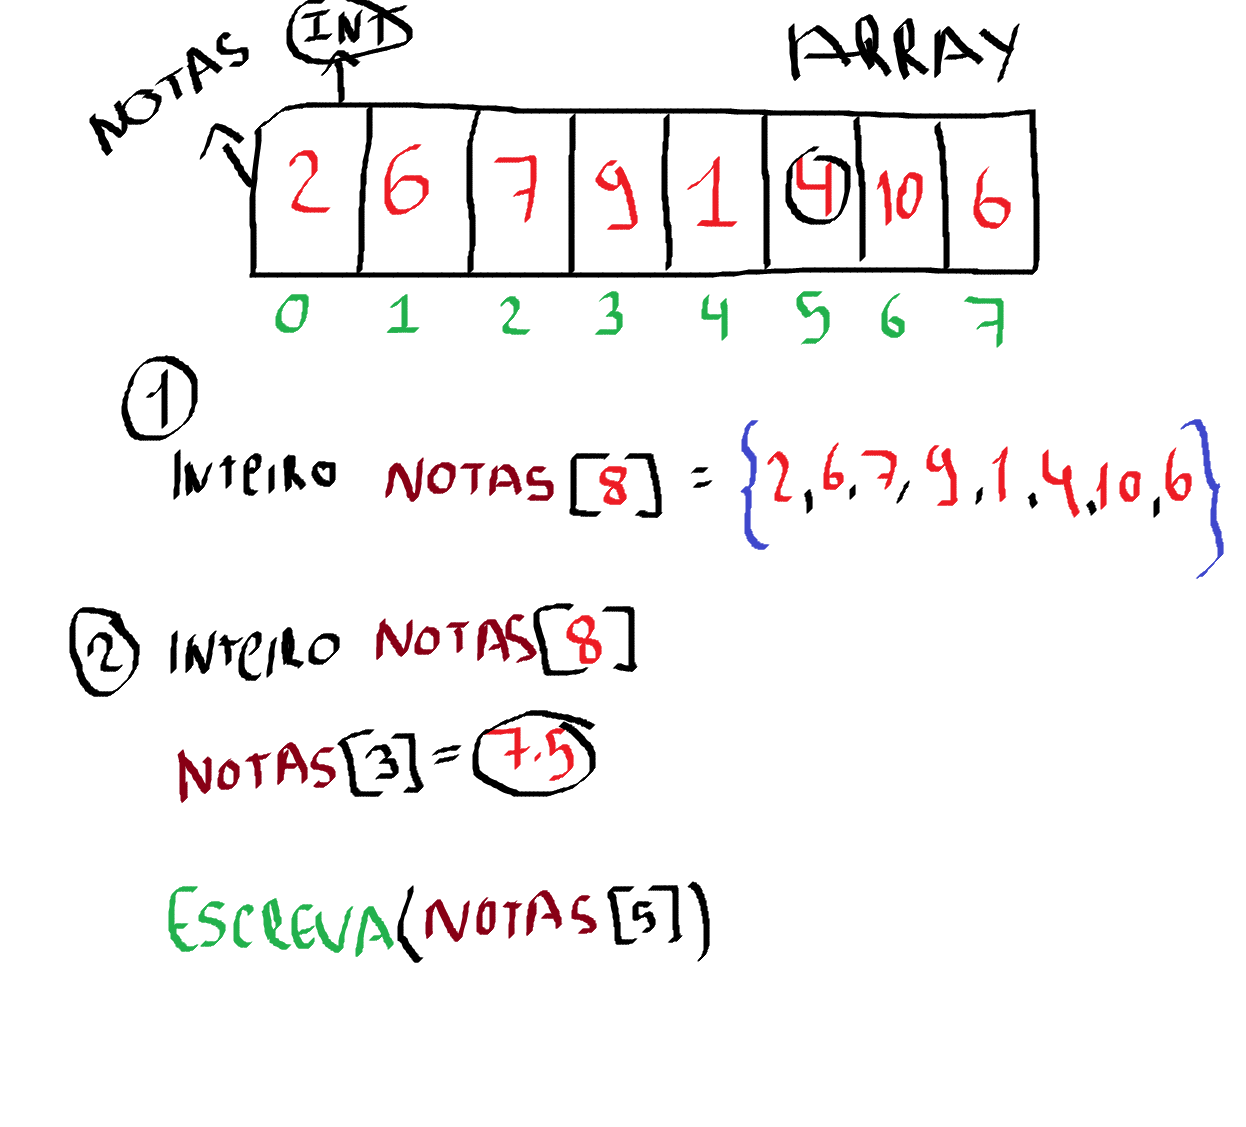 NOTAS INT ARRAY
2 6 7 9 1 4 10 6
0 1 2 3 4 5 6 7
1
INTEIRO NOTAS[8] = {2,6,7,9,1,4,10,6}
2 INTEIRO NOTAS[8]
NOTAS[3] = 7.5
ESCREVA(NOTAS[5])